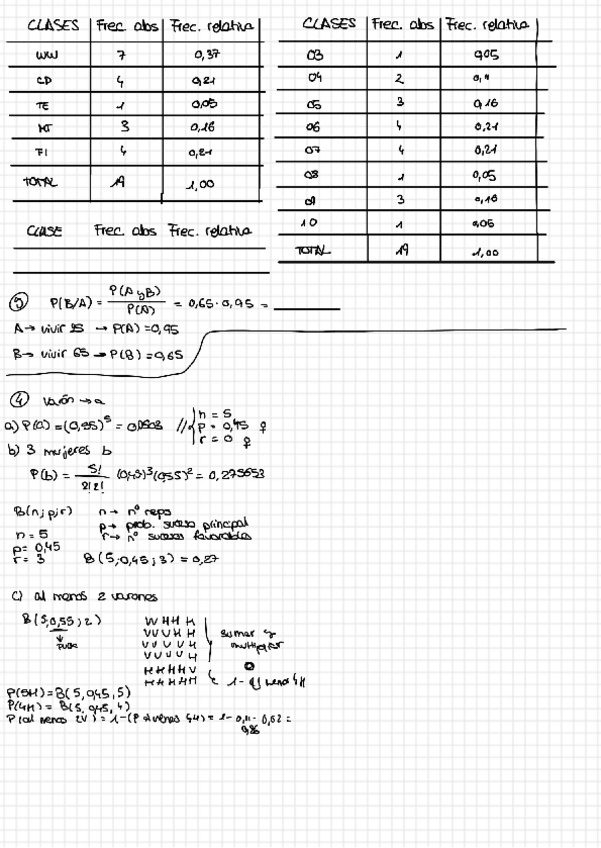 CLASES Frec. abs Frec. relativa
WW 7 0,37
CD 4 0,21
TE 1 0,05
MT 3 0,16
FI 4 0,21
TOTAL 19 1,00
CLASES Frec. abs Frec. relativa
03 1 0,05
04 2 0,11
05 3 0,16
06 4 0,21
07 4 0,21
08 1 0,05
09 3 0,16
10 1 0,05
TOTAL 19 1,00
CLASE Frec. abs Frec. relativa
③ P(B/A) = P(A y B) / P(A) = 0,65 · 0,95 =
A → vivir 25 → P(A) = 0,95
B → vivir 65 → P(B) = 0,65
④ Varón → a
a) P(a) = (0,55)⁵ = 0,0503 // n = 5
p = 0,45 ♀
r = 0 ♀
b) 3 mujeres b
P(b) = 5! / 2!2! (0,45)³ (0,55)² = 0,275653
B(n; p; r) n → nº reps
p → prob. suceso principal
r → nº sucesos favorables
n = 5
p = 0,45
r = 3 B(5; 0,45; 3) = 0,27
c) al menos 2 varones
B(5; 0,55; 2)
VVHHH
VVVHH
VVVVH
sumar y
multiplicar
o
HHHHV
HHHHH
P(5H) = B(5, 0,45, 5)
P(4H) = B(5, 0,45, 4)
P(al menos 2V) = 1 - (P al menos 4H) = 1 - 0,11 - 0,02 =
0,86